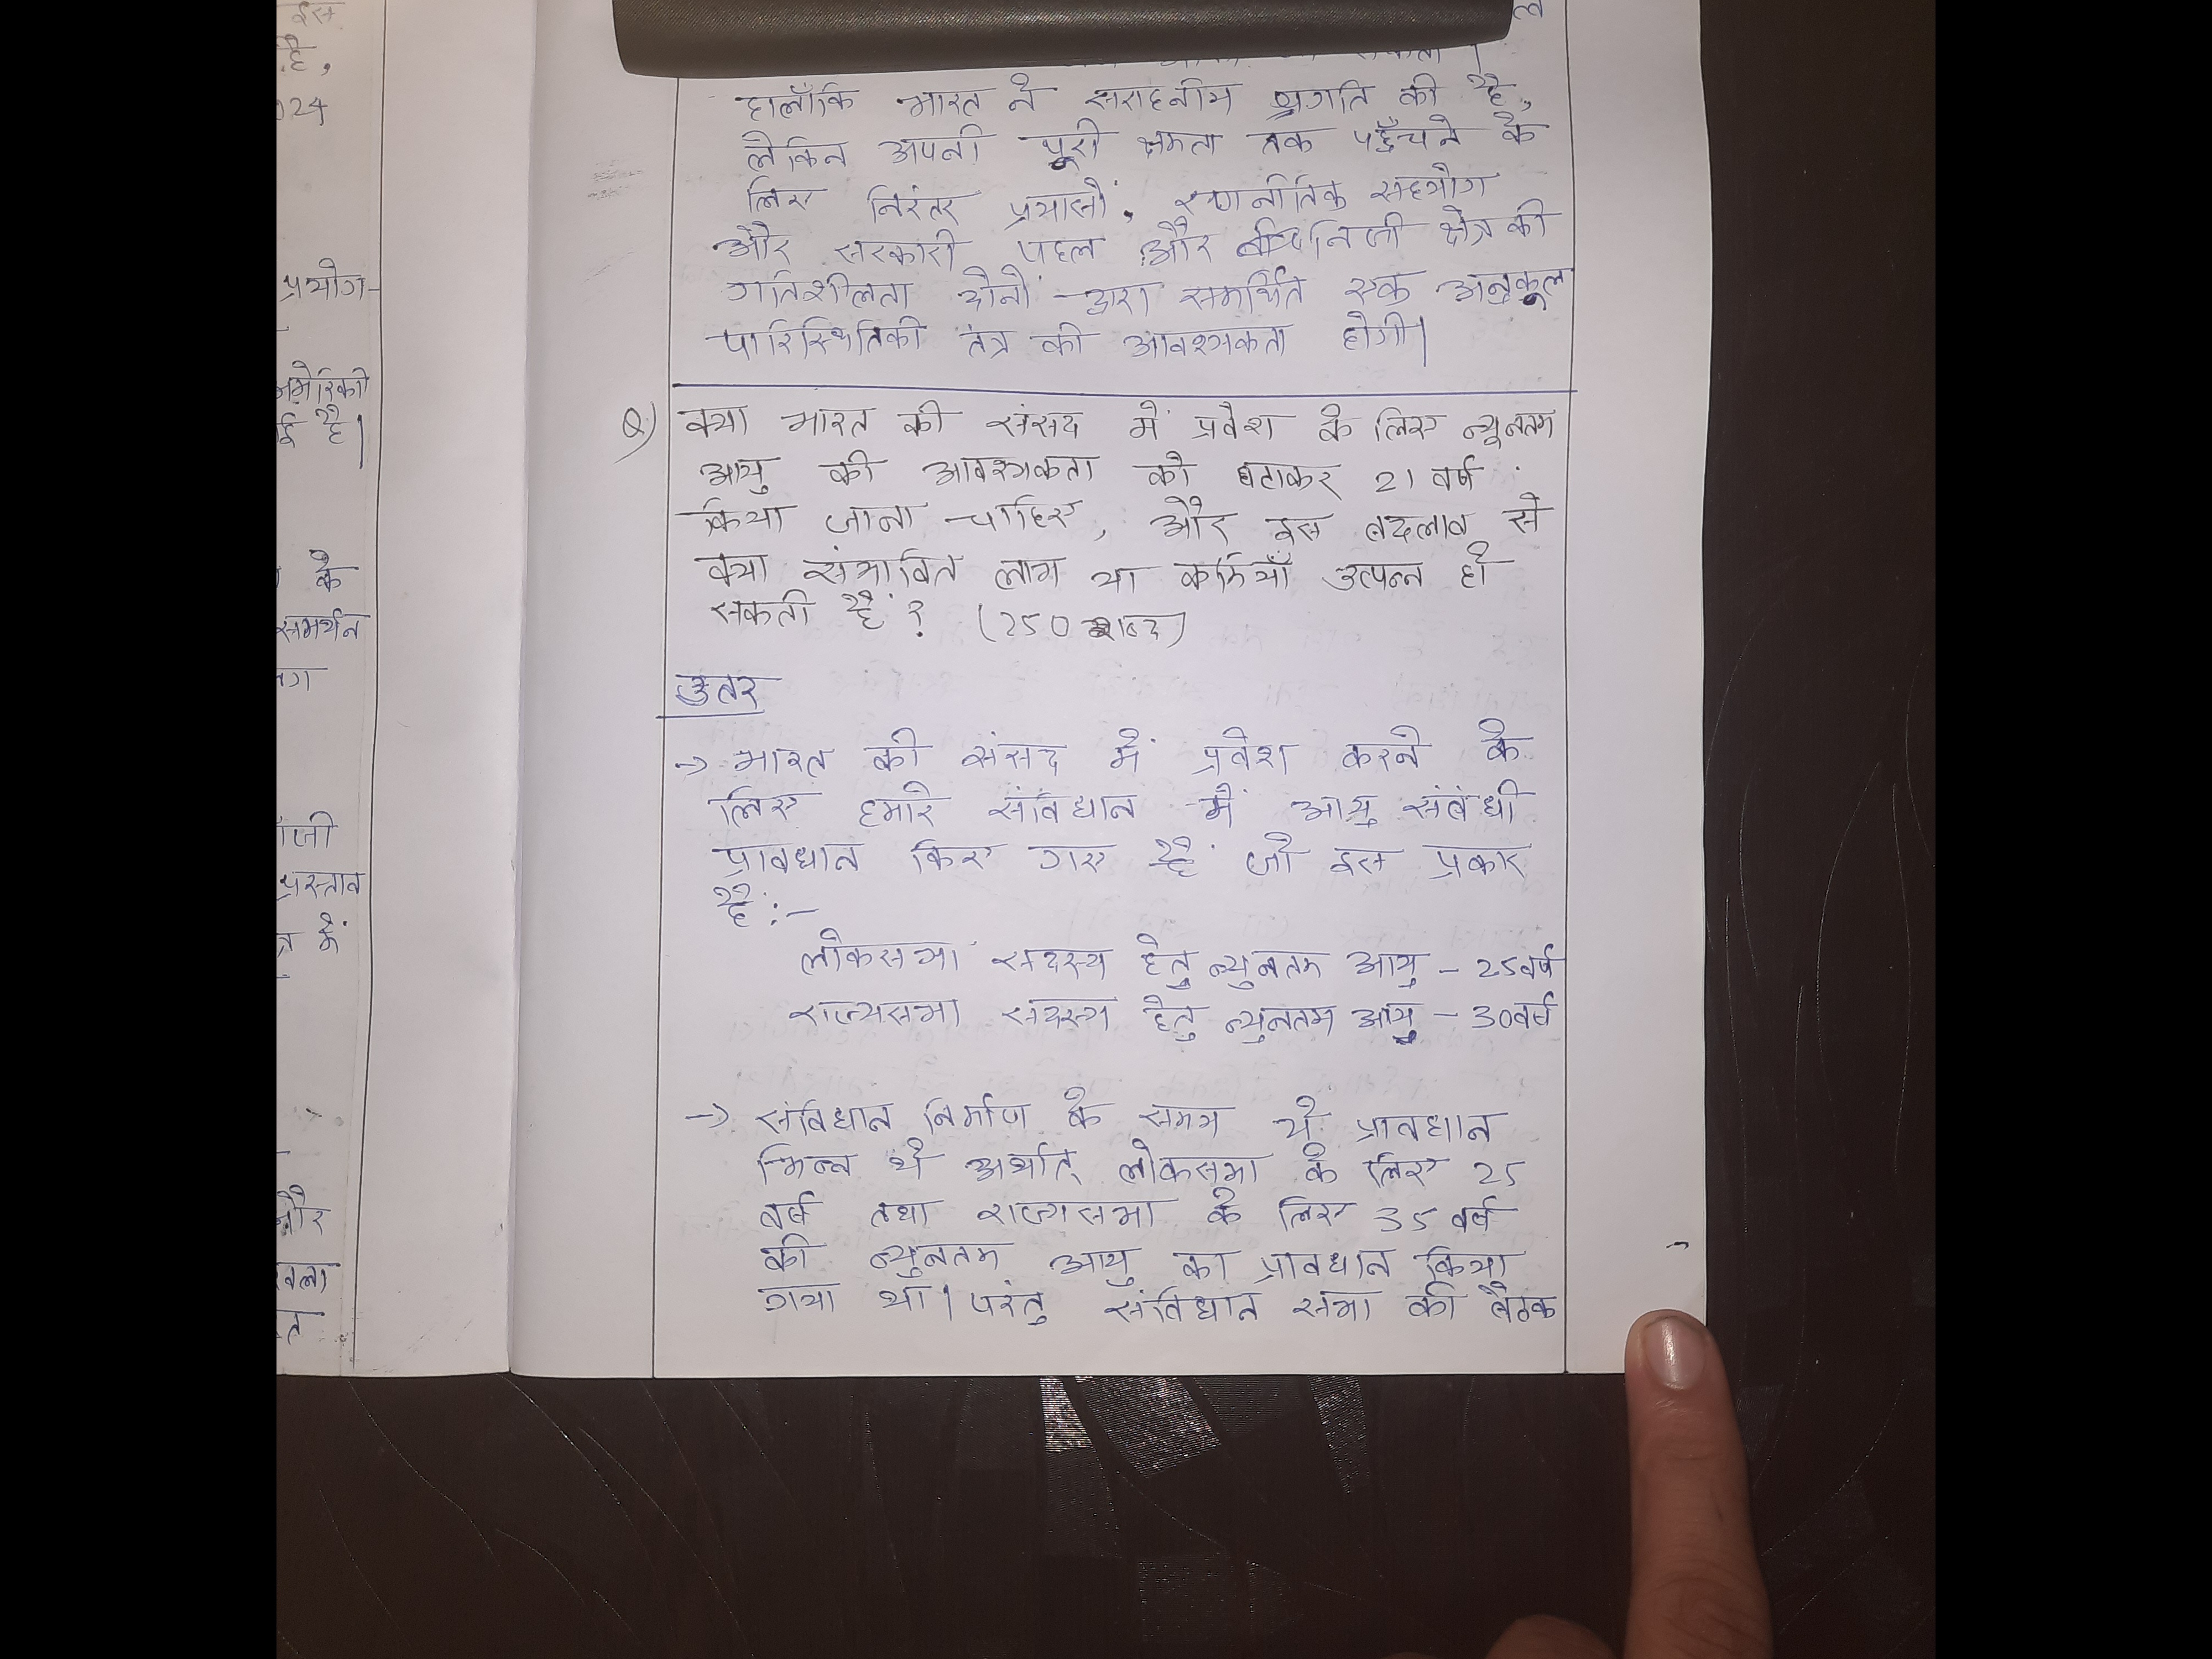 इस
है,
024
प्रयोग-
अमेरिकी
ई है|
के
समर्थन
जी
प्रस्ताव
और
हालाँकि भारत ने सराहनीय प्रगति की है,
लेकिन अपनी पूरी क्षमता तक पहुँचने के
लिए निरंतर प्रयासों, रणनीतिक सहयोग
और सरकारी पहल और निजी क्षेत्र की
गतिशीलता दोनों द्वारा समर्थित एक अनुकूल
पारिस्थितिकी तंत्र की आवश्यकता होगी|
Q) क्या भारत की संसद में प्रवेश के लिए न्यूनतम
आयु की आवश्यकता को घटाकर 21 वर्ष
किया जाना चाहिए, और इस बदलाव से
क्या संभावित लाभ या कमियाँ उत्पन्न हो
सकती हैं? (250 शब्द)
उतर
→ भारत की संसद में प्रवेश करने के
लिए हमारे संविधान में आयु संबंधी
प्रावधान किए गए हैं जो इस प्रकार
है:-
लोकसभा सदस्य हेतु न्युनतम आयु - 25 वर्ष
राज्यसभा सदस्य हेतु न्युनतम आयु - 30 वर्ष
→ संविधान निर्माण के समय ये प्रावधान
भिन्न थे अर्थात् लोकसभा के लिए 25
वर्ष तथा राज्यसभा के लिए 35 वर्ष
की न्युनतम आयु का प्रावधान किया
गया था| परंतु संविधान सभा की बैठक